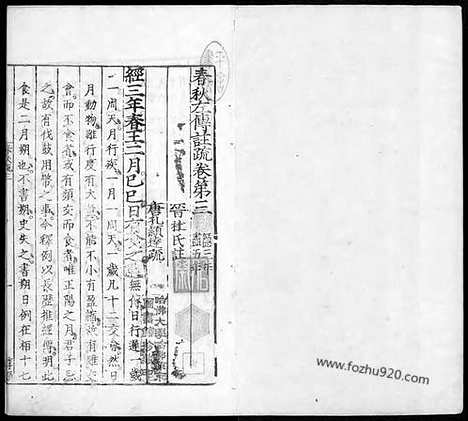 春秋左傳註疏卷第三
隱三年
盡五年
晉杜氏註
唐孔穎達疏
經三年春王二月己巳日有食之
無傳日行遲一歲
一周天月行疾一月一周天一歲凡十二交會然日
月動物雖行度有大量不能不小有盈縮故有雖交
會而不食者或有頻交而食者唯正陽之月君子忌
之故有伐鼓用幣之事今釋例以長歷推經傳明此
食是二月朔也不書朔史失之書朔日例在桓十七
https://www.fozhu920.com/